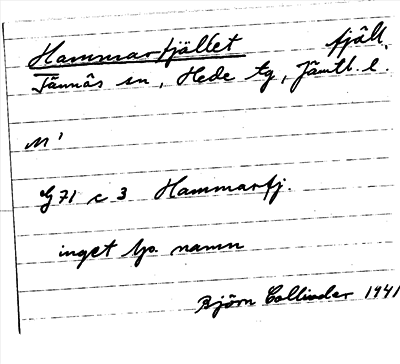 Hammarfjället fjäll.
Tännäs sn, Hede tg, Jämtl. l.
M'
G 71 c 3 Hammarfj.
inget lp. namn
Björn Collinder 1941